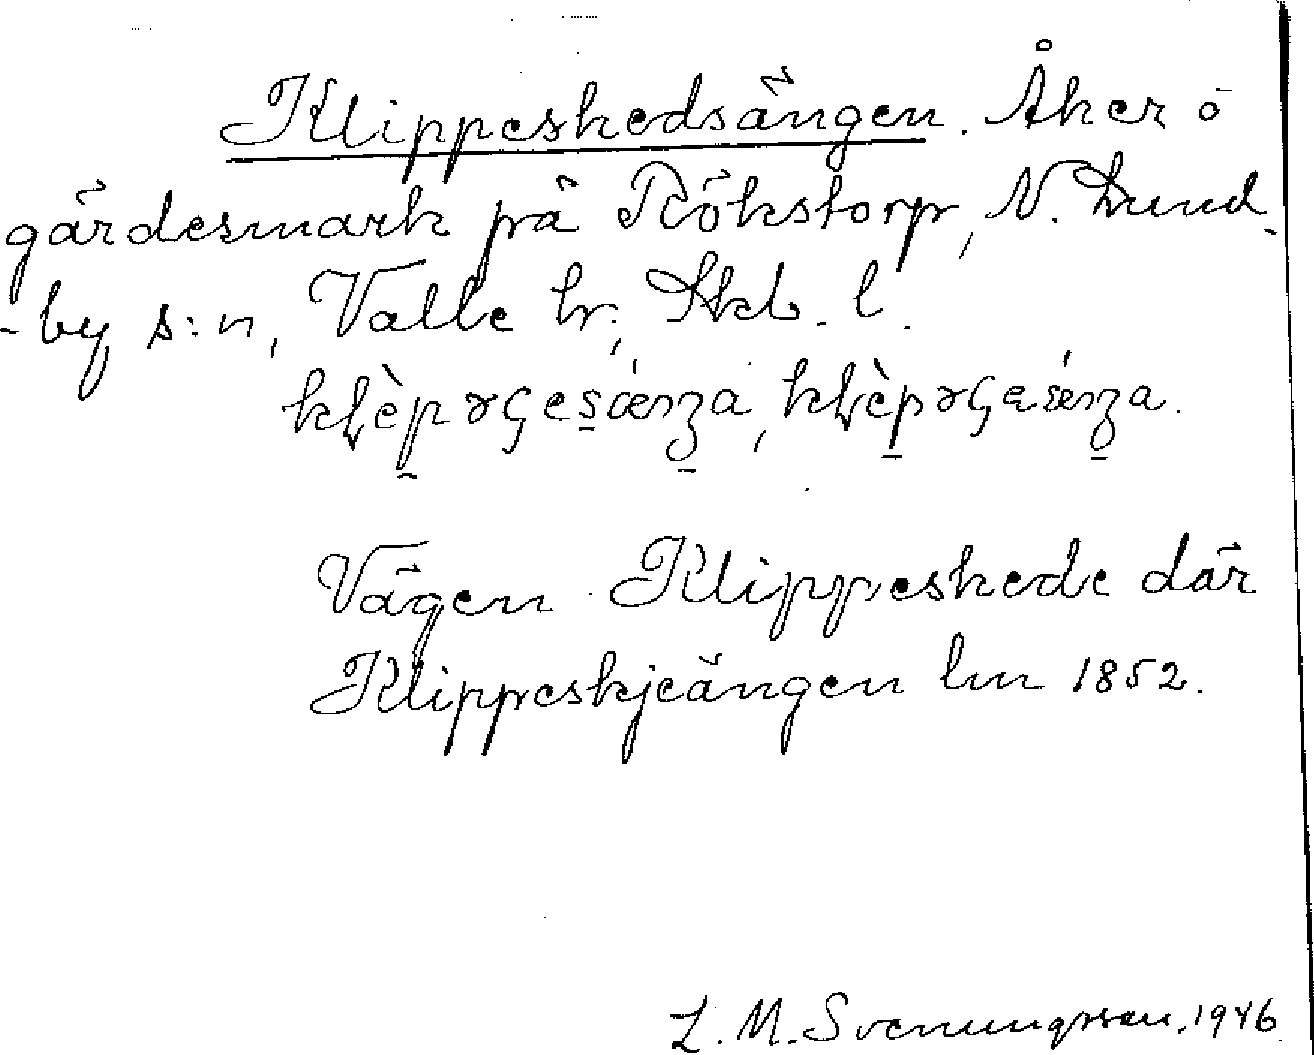 Klippeskedsängen. Åker o
gärdesmark på Rökstorp, N. Lund-
-by s:n, Valle hr, Skb. l.
Vägen Klippeskede där
Klippeskjeängen lm 1852.
L. M. Svenungsson, 1946